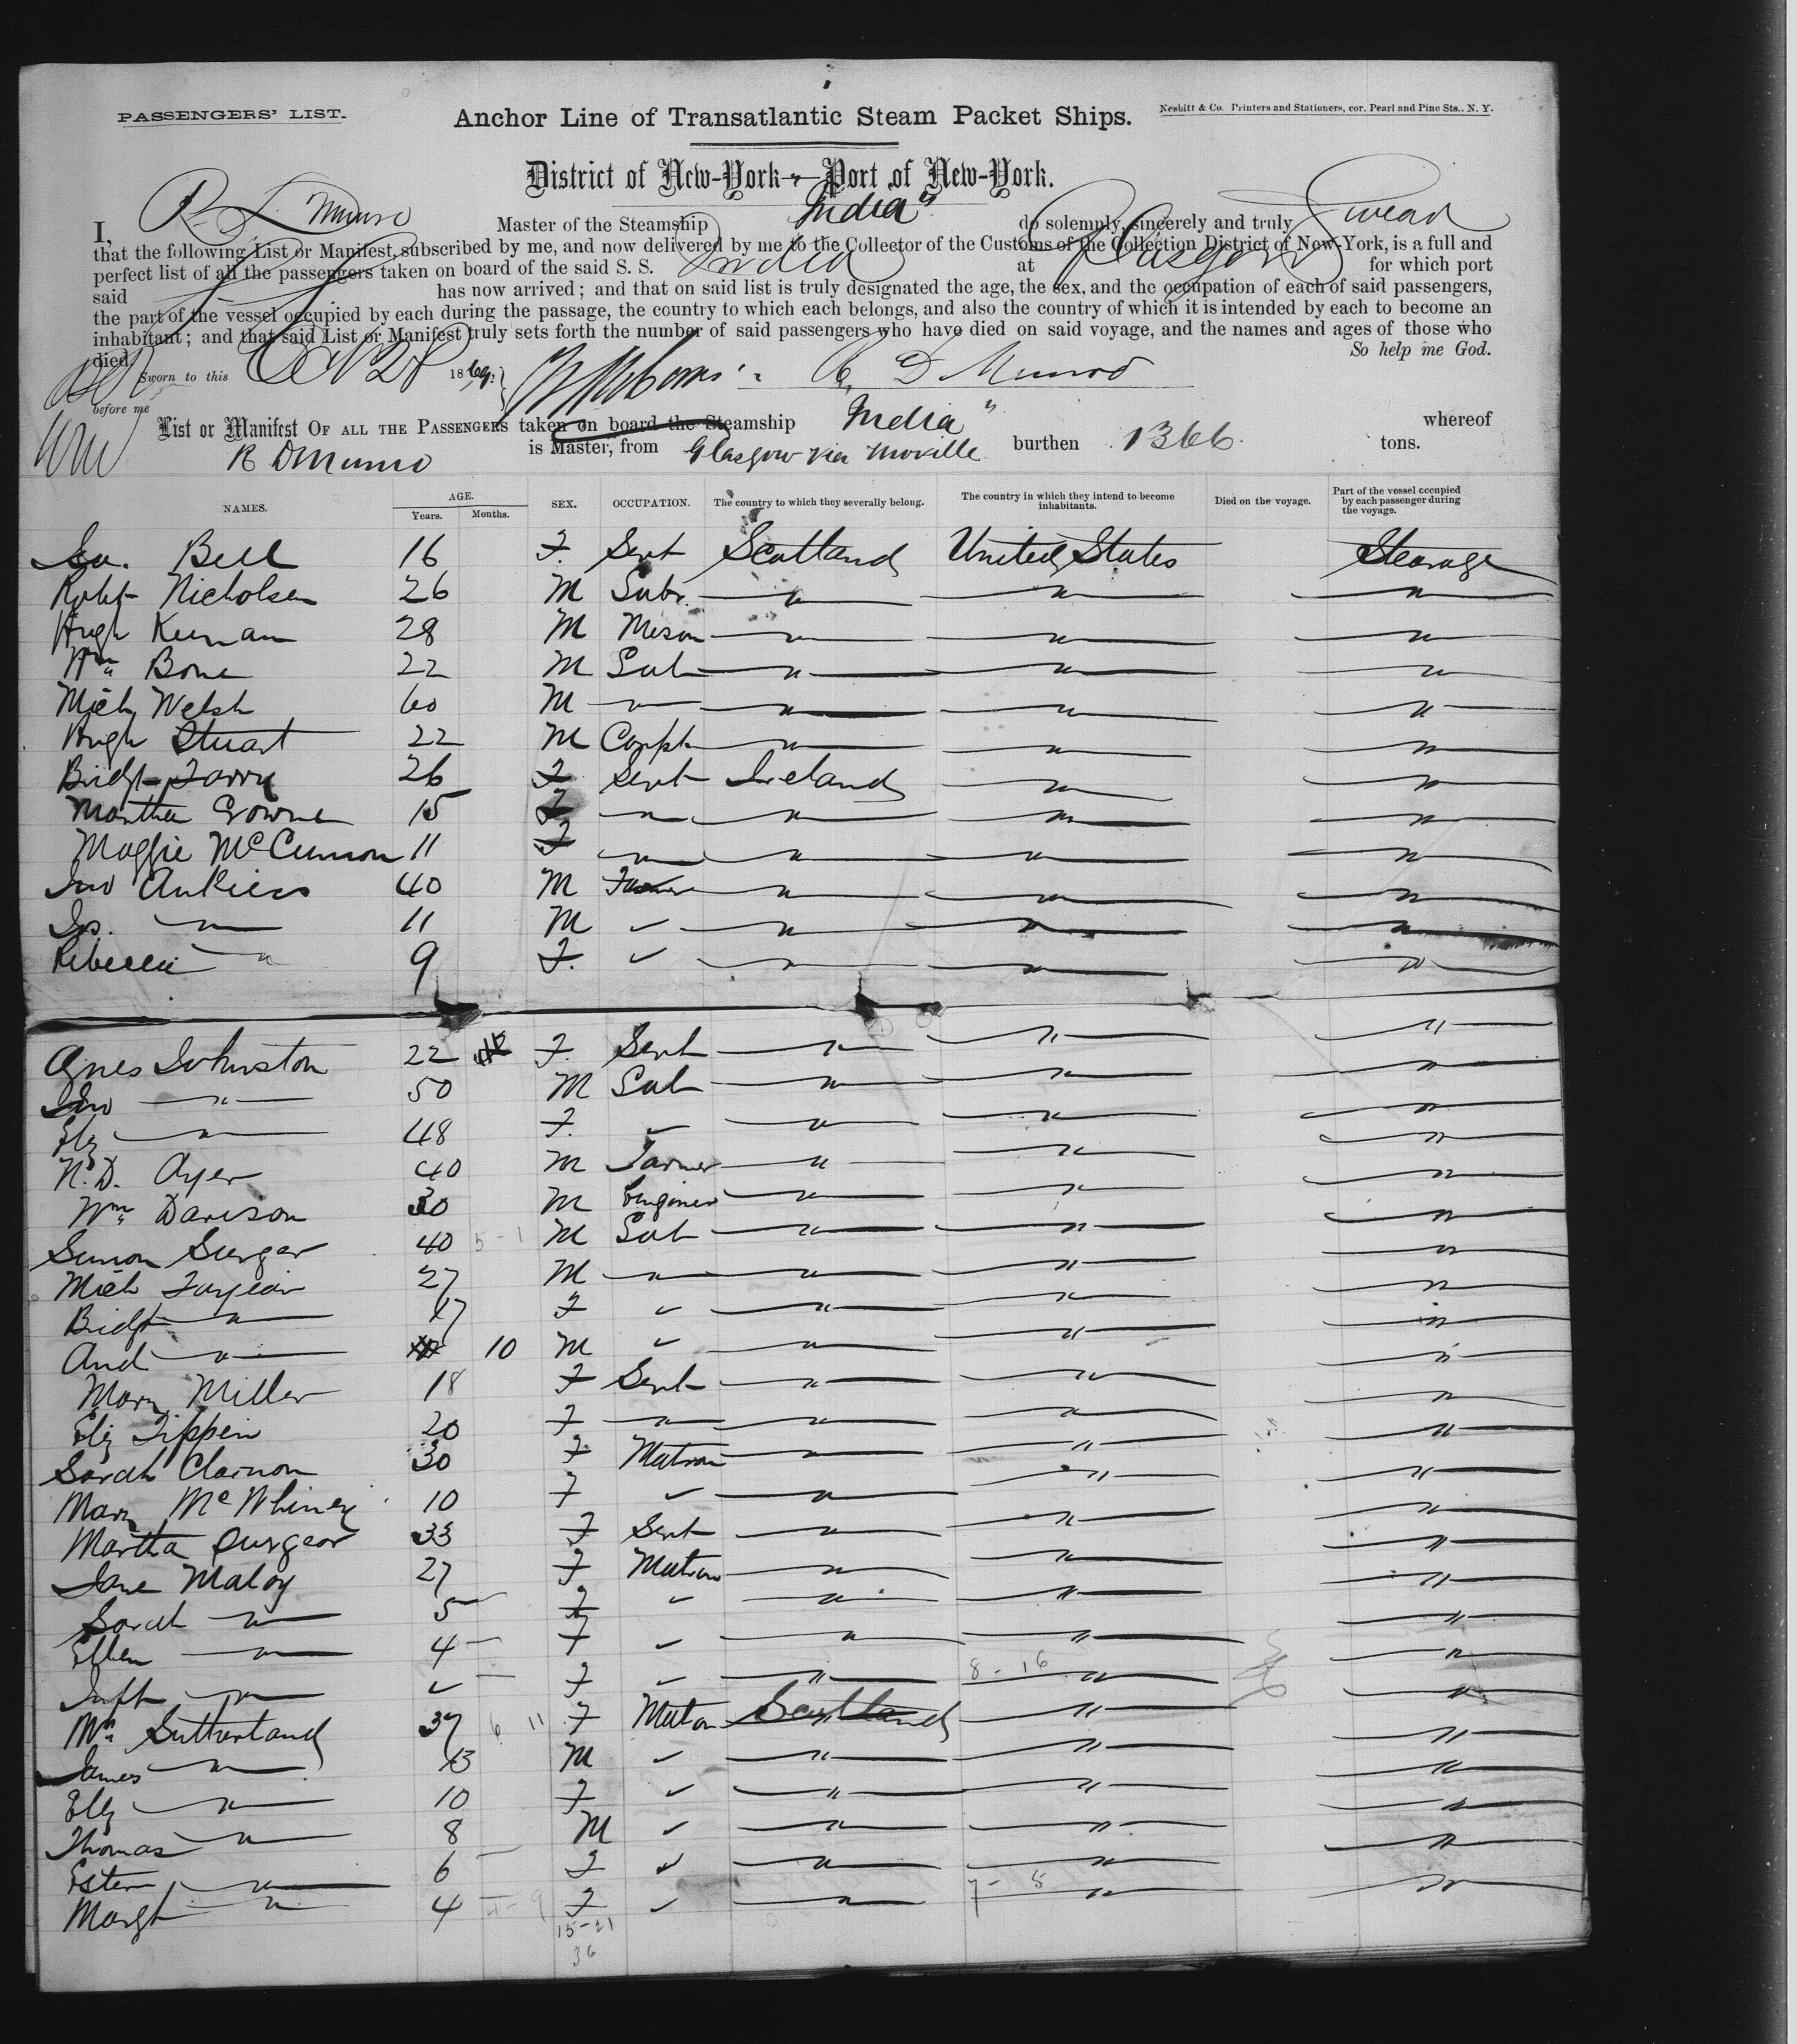 PASSENGERS' LIST.
Anchor Line of Transatlantic Steam Packet Ships.
Nesbitt & Co. Printers and Stationers, cor. Pearl and Pine Sts., N. Y.
District of New-York—Port of New-York.
I, R. D. Munro Master of the Steamship "India" do solemnly, sincerely and truly swear
that the following List or Manifest, subscribed by me, and now delivered by me to the Collector of the Customs of the Collection District of New-York, is a full and
perfect list of all the passengers taken on board of the said S. S. India at Glasgow for which port
said has now arrived; and that on said list is truly designated the age, the sex, and the occupation of each of said passengers,
the part of the vessel occupied by each during the passage, the country to which each belongs, and also the country of which it is intended by each to become an
inhabitant; and that said List or Manifest truly sets forth the number of said passengers who have died on said voyage, and the names and ages of those who
died. So help me God.
Sworn to this Oct 28 1869. R. D. Munro
before me
List or Manifest OF ALL THE PASSENGERS taken on board the Steamship India" whereof
R D Munro is Master, from Glasgow via Moville burthen 1366 tons.
NAMES. AGE. Years. Months. SEX. OCCUPATION. The country to which they severally belong. The country in which they intend to become inhabitants. Died on the voyage. Part of the vessel occupied by each passenger during the voyage.
Bell 16 F. Servt Scotland United States Steerage
Robt Nicholson 26 M " " "
Hugh Keenan 28 M Mason " " "
Wm Bone 22 M " " "
Mich Welsh 60 M " " " "
Hugh Stuart 22 M " " "
Bridgt 26 F Servt Ireland " "
Martha 15 F " " " "
Maggie 11 F " " " "
Jno 40 M Farmer " " "
Jas. " 11 M " " "
Rebecca " 9 F. " " "
Agnes Johnston 22 F. Servt " " "
Jno " 50 M " " "
Eliz " 48 F. " " "
N. D. Ayer 40 M Farmer " " "
Wm Davison 30 M Engineer " " "
Simon 40 M " " "
Mich 27 M " " " "
Bridgt " 17 F " " "
And " 10 M " " "
Mary Miller 18 F Servt " " "
Eliz Tippin 20 F " " " "
Sarah 30 F Matron " " "
Mary McWhiney 10 F " " "
Martha Surgeor 33 F Servt " " "
Jane Maloy 27 F Matron " " "
Sarah " 5 F " " "
Ellen " 4 F " " "
Inft " F " " "
8 - 16
Mrs Sutherland 37 F Matron Scotland " "
James " 13 M " " "
Eliz " 10 F " " "
Thomas " 8 M " " "
Ester " 6 F " " "
7 - 5
Margt " 4 F " " "
15-21
36